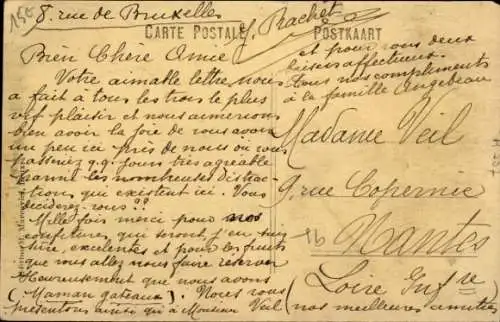 15c
8. rue de Bruxelles
J. Prachet
CARTE POSTALE
POSTKAART
Bien Chère Amie
Votre aimable lettre nous
a fait à tous les trois le plus
vif plaisir et nous aimerions
bien avoir la joie de vous avoir
un peu ici près de nous où vous
passeriez q.q. jours bien agréable
parmi les nombreuses distrac-
tions qui existent ici. Vous
déciderez-vous ??
Mille fois merci pour vos
confitures, qui seront, j'en suis
sûre excellentes et pour les fruits
que vous allez nous faire envoyer
Heureusement que nous avons
(Maman gateaux). Nous vous
présentons ainsi qu'à Monsieur Veil
(nos meilleures amitiés
et pour vous deux
baisers affectueux.
Tous nos compliments
à la famille Angebeau
Madame Veil
9. rue Copernic
Nantes
Loire Infre